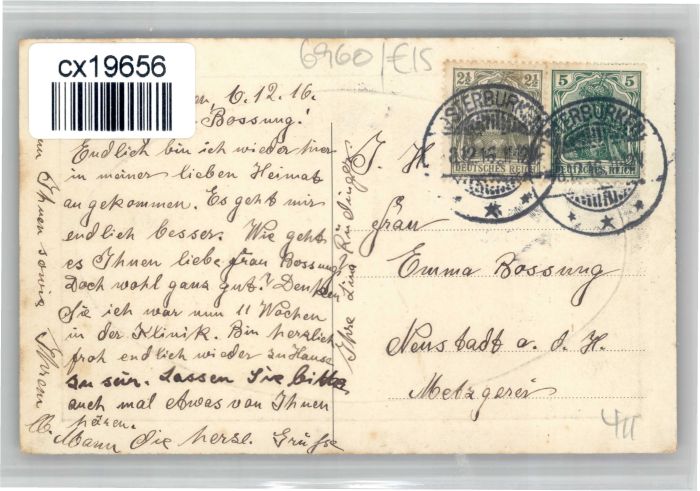 cx19656
6960/€15
6.12.16.
Bossung!
Endlich bin ich wieder hier
in meiner lieben Heimat
angekommen. Es geht mir
endlich besser. Wie geht
es Ihnen liebe Frau Bossung?
Doch wohl ganz gut? Denken
Sie ich war nun 11 Wochen
in der Klinik. Bin herzlich
froh endlich wieder zu Hause
zu sein. Lassen Sie bitte
auch mal etwas von Ihnen
hören.
Ihnen sowie Ihrem
lb. Mann die herzl. Grüsse
Ihre Lina Rüdinger
2½ 2½
DEUTSCHES REICH
5 5
DEUTSCHES REICH
OSTERBURKEN
OSTERBURKEN
I. H.
Frau
Emma Bossung
Neustadt a. d. H.
Metzgerei